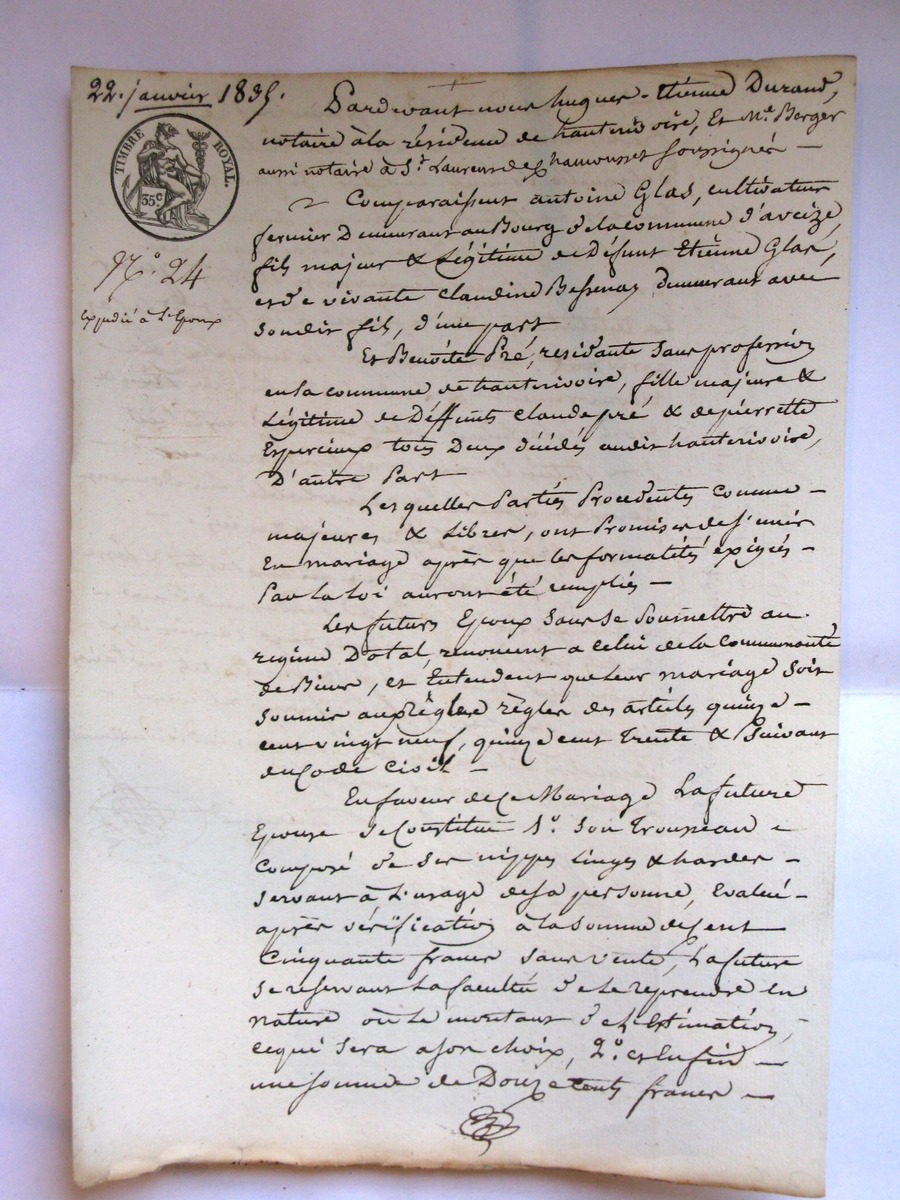 22. janvier 1835.
TIMBRE ROYAL.
35 c.
N.° 24
expédié à L'Epoux
Pardevant nous hugues-Etienne Durand,
notaire à la résidence de hauterivoire, Et Me. Berger
aussi notaire à St. Laurens de chamousset soussignés —
Comparaissent antoine Glas, cultivateur
fermier Demeurant au Bourg de la commune d'aveize,
fils majeur & Légitime de Défunt Etienne Glas,
et de vivante Claudine Bessenay demeurant avec
sondit fils, d'une part
Et Benoite Pré, residante sans profession
en la commune de hauterivoire, fille majeure &
Légitime de Déffunts Claude pré & de pierrette
Esparcieux tous Deux décédés audit hauterivoire,
D'autre Part
Lesquelles Parties Procedentes Comme —
majeures & Libres, ont Promis de s'unir
En mariage après que les formalités exigées —
Par la Loi auront été remplies —
Les futurs Epoux sans se soumettre au
regime Dotal, renoncent a celui de la Communauté
de Biens, et Entendent que leur mariage soit
soumis aux règles des articles quinze —
cent vingt neuf, quinze cent Trente & Suivant
du Code Civil —
En faveur de ce Mariage La future
Epouse se Constitue 1.° Son Trousseau
Composé de ses nippes Linges & hardes —
servant à L'usage de sa personne, Evalué —
après vérification à la somme de cent
Cinquante francs sans vente, La future
se reservant La faculté de le reprendre En
nature ou le montant de l'Estimation,
ce qui sera a son choix, 2.° et Enfin —
une somme de Douze cents francs —